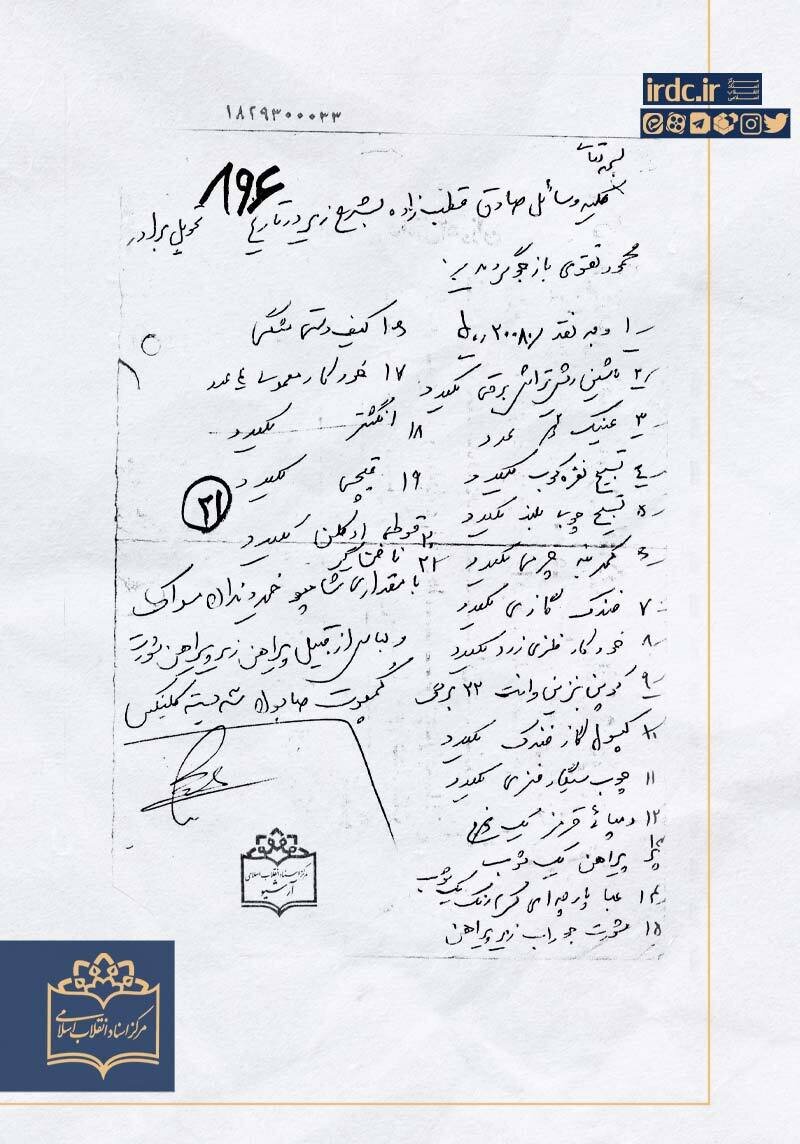 irdc.ir
مرکز اسناد انقلاب اسلامی
۱۸۲۹۳۰۰۰۳۳
بسمه تعالی
کلیه وسائل صادق قطب زاده بشرح زیر در تاریخ تحویل برادر
۸۹۶
محمود تقوی بازجو گردید:
۱ وجه نقد ۲۰۰۸۰ ریال
۲ ماشین ریش تراش برقی یکعدد
۳ عینک ۲ عدد
۴ تسبیح نقره کوب یکعدد
۵ تسبیح چوب بلند یکعدد
۶ کمربند چرمی یکعدد
۷ فندک گازی یکعدد
۸ خودکار فلزی زرد یکعدد
۹ کوپن بنزین وانت ۲۲ برگی
۱۰ کپسول گاز فندک یکعدد
۱۱ چوب سیگار فنری یکعدد
۱۲ دمپائی قرمز یک زوج
۱۳ پیراهن یک ثوب
۱۴ عبا پارچه‌ای کرم رنگ یک ثوب
۱۵ شورت جوراب زیر پیراهن
۱۶ کیف دستی مشکی
۱۷ خودکار معمولی عدد
۱۸ انگشتر یکعدد
۱۹ قیچی یکعدد
۲۰ قوطی ادکلن یکعدد
۲۱ ناخنگیر
۲۱
با مقداری شامپو خمیر دندان مسواک
و لباس از قبیل پیراهن زیر پیراهن شورت
کمپوت صابون شه بسته کلینکس
مرکز اسناد انقلاب اسلامی
آرشیو
مرکز اسناد انقلاب اسلامی